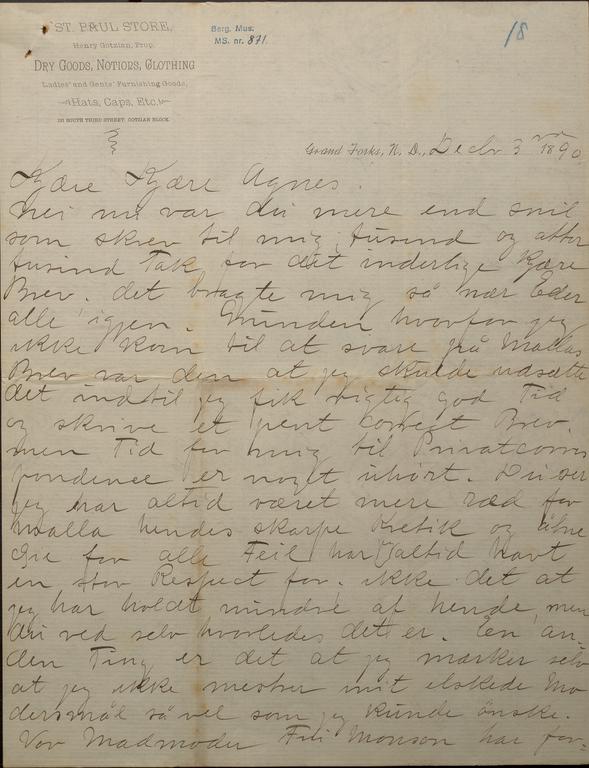 ST. PAUL STORE,
Henry Gotzian, Prop.
DRY GOODS, NOTIONS, CLOTHING
Ladies' and Gents' Furnishing Goods,
Hats, Caps, Etc.
SOUTH THIRD STREET, GOTZIAN BLOCK.
Berg. Mus.
MS. nr. 871.
18
Grand Forks, N. D., Decbr 3rd 1890
Kjære Kjære Agnes.
Nei nu var du mere end snil
som skrev til mig, tusend og atter
tusind Tak for det inderlige kjære
Brev. det bragte mig så nær Eder
alle igjen. Grunden hvorfor jeg
ikke kom til at svare på Mallas
Brev var den at jeg skulde udsætte
det indtil jeg fik rigtig god Tid
og skrive et pent correct Brev.
men Tid for mig til Privatcorres
pondence er noget uhørt. Du ser
jeg har altid været mere ræd for
Malla hendes skarpe Kretik og åbne
Øie for alle Feil har jeg altid havt
en stor Respect for. ikke det at
jeg har holdt mindre af hende, men
du ved selv hvorledes det er. En an-
den Ting er det at jeg mærker selv
at jeg ikke mestrer mit elskede Mo
dersmål så vel som jeg kunde ønske.
Vor Madmoder Monson har for-